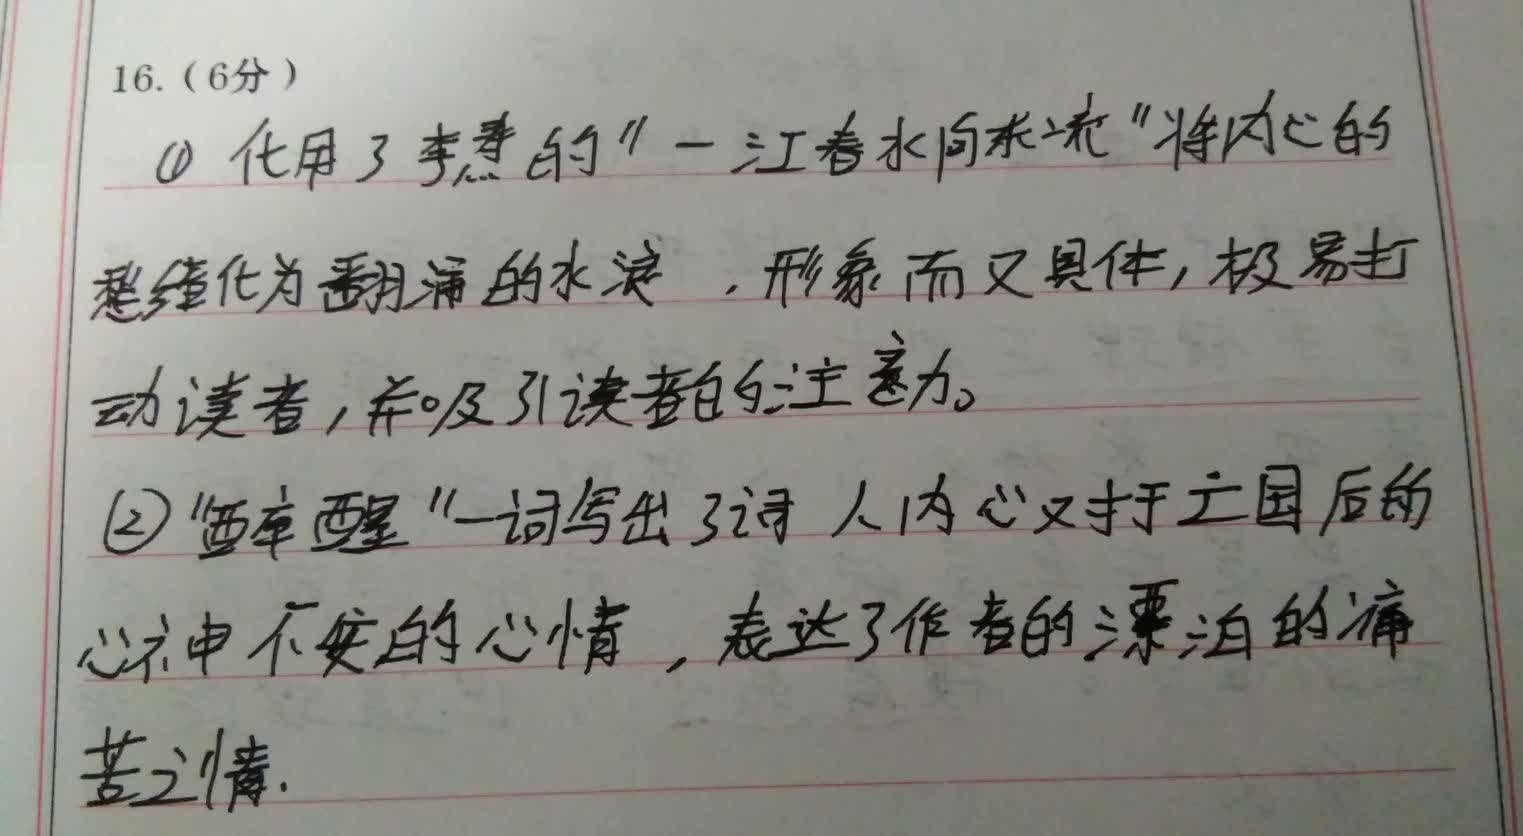 16.（6分）
① 化用了李煜的"一江春水向东流"将内心的
愁绪化为翻涌的水浪，形象而又具体，极易打
动读者，并吸引读者的注意力。
②"酒醒"一词写出了词人内心对于亡国后的
心神不安的心情，表达了作者的漂泊的痛
苦之情.